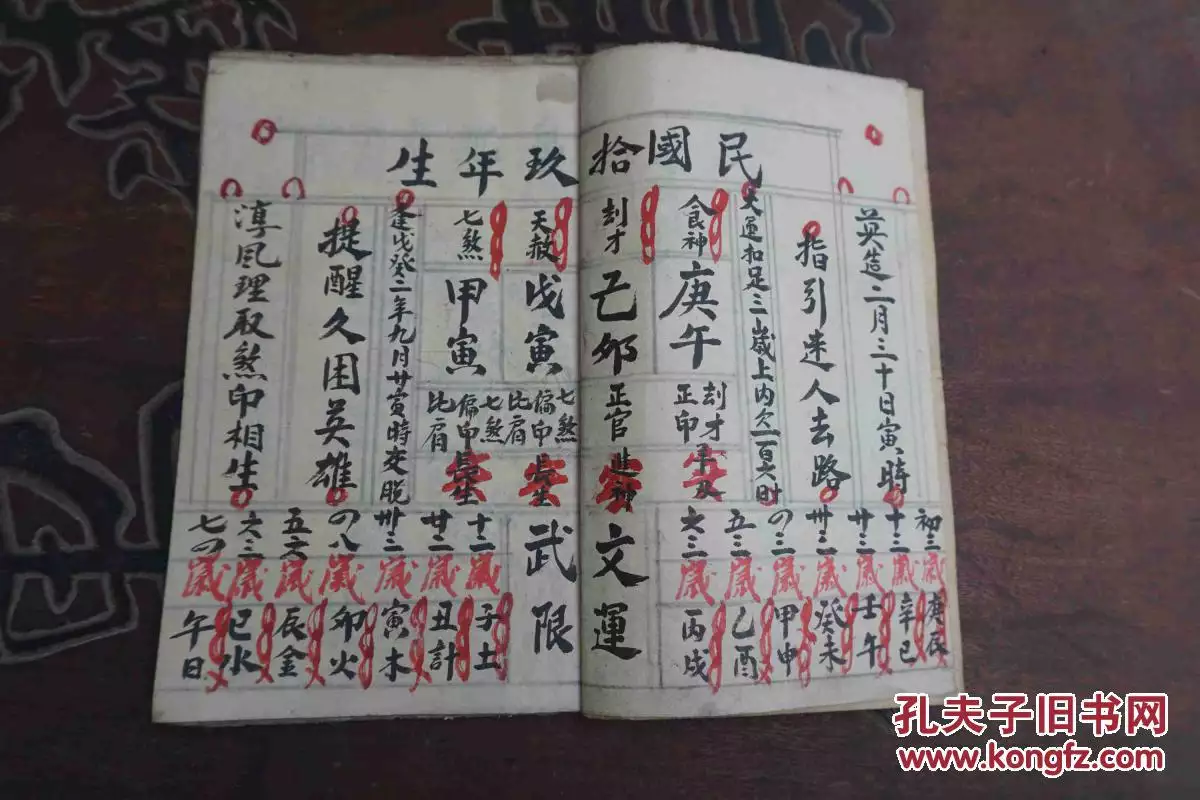 民國拾玖年生
英造二月三十日寅時
指引迷人去路
大運扣足三歲上內欠一百六时
食神
庚午
刦才
正印
刦才
己卯
正官
進神
天赦
戊寅
七煞
偏印
比肩
長生
七煞
甲寅
七煞
偏印
比肩
長生
逢戊癸二年九月廿寅時交脱
提醒久困英雄
淳風理取煞印相生
文運
初三歲庚辰
十三歲辛巳
廿三歲壬午
卅三歲癸未
四三歲甲申
五三歲乙酉
六三歲丙戌
武限
十二歲子土
廿二歲丑計
卅三歲寅木
四八歲卯火
五六歲辰金
六三歲巳水
七四歲午日
孔夫子旧书网
www.kongfz.com